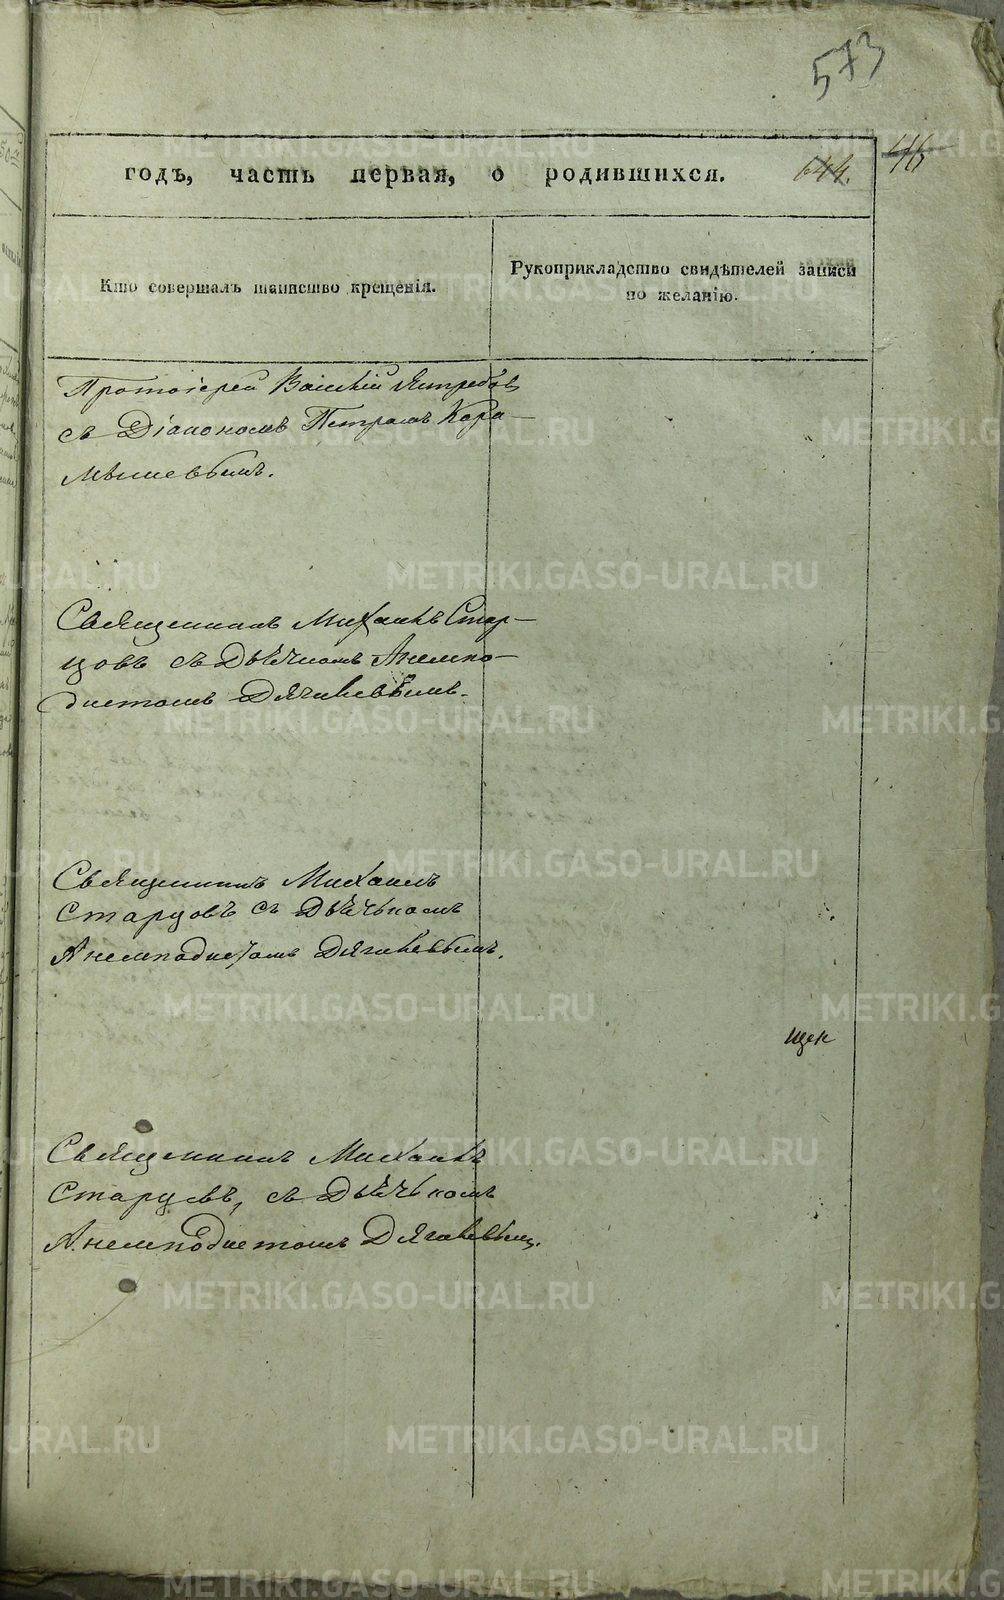 573
годъ, часть первая, о родившихся.
644.
Кто совершалъ таинство крещенія.
Рукоприкладство свидѣтелей записи
по желанію.
Протоіерей Василій Ястребовъ
съ Діакономъ Петромъ Кара-
мышевымъ.
Священникъ Михаилъ Стар-
цовъ съ Дьячкомъ Анемпо-
дистомъ Дягилевымъ.
Священникъ Михаилъ
Старцовъ съ Дьячькомъ
Анемподистомъ Дягилевымъ.
щек
Священникъ Михаилъ
Старцовъ, съ Дьячькомъ
Анемподистомъ Дягилевымъ.
METRIKI.GASO-URAL.RU